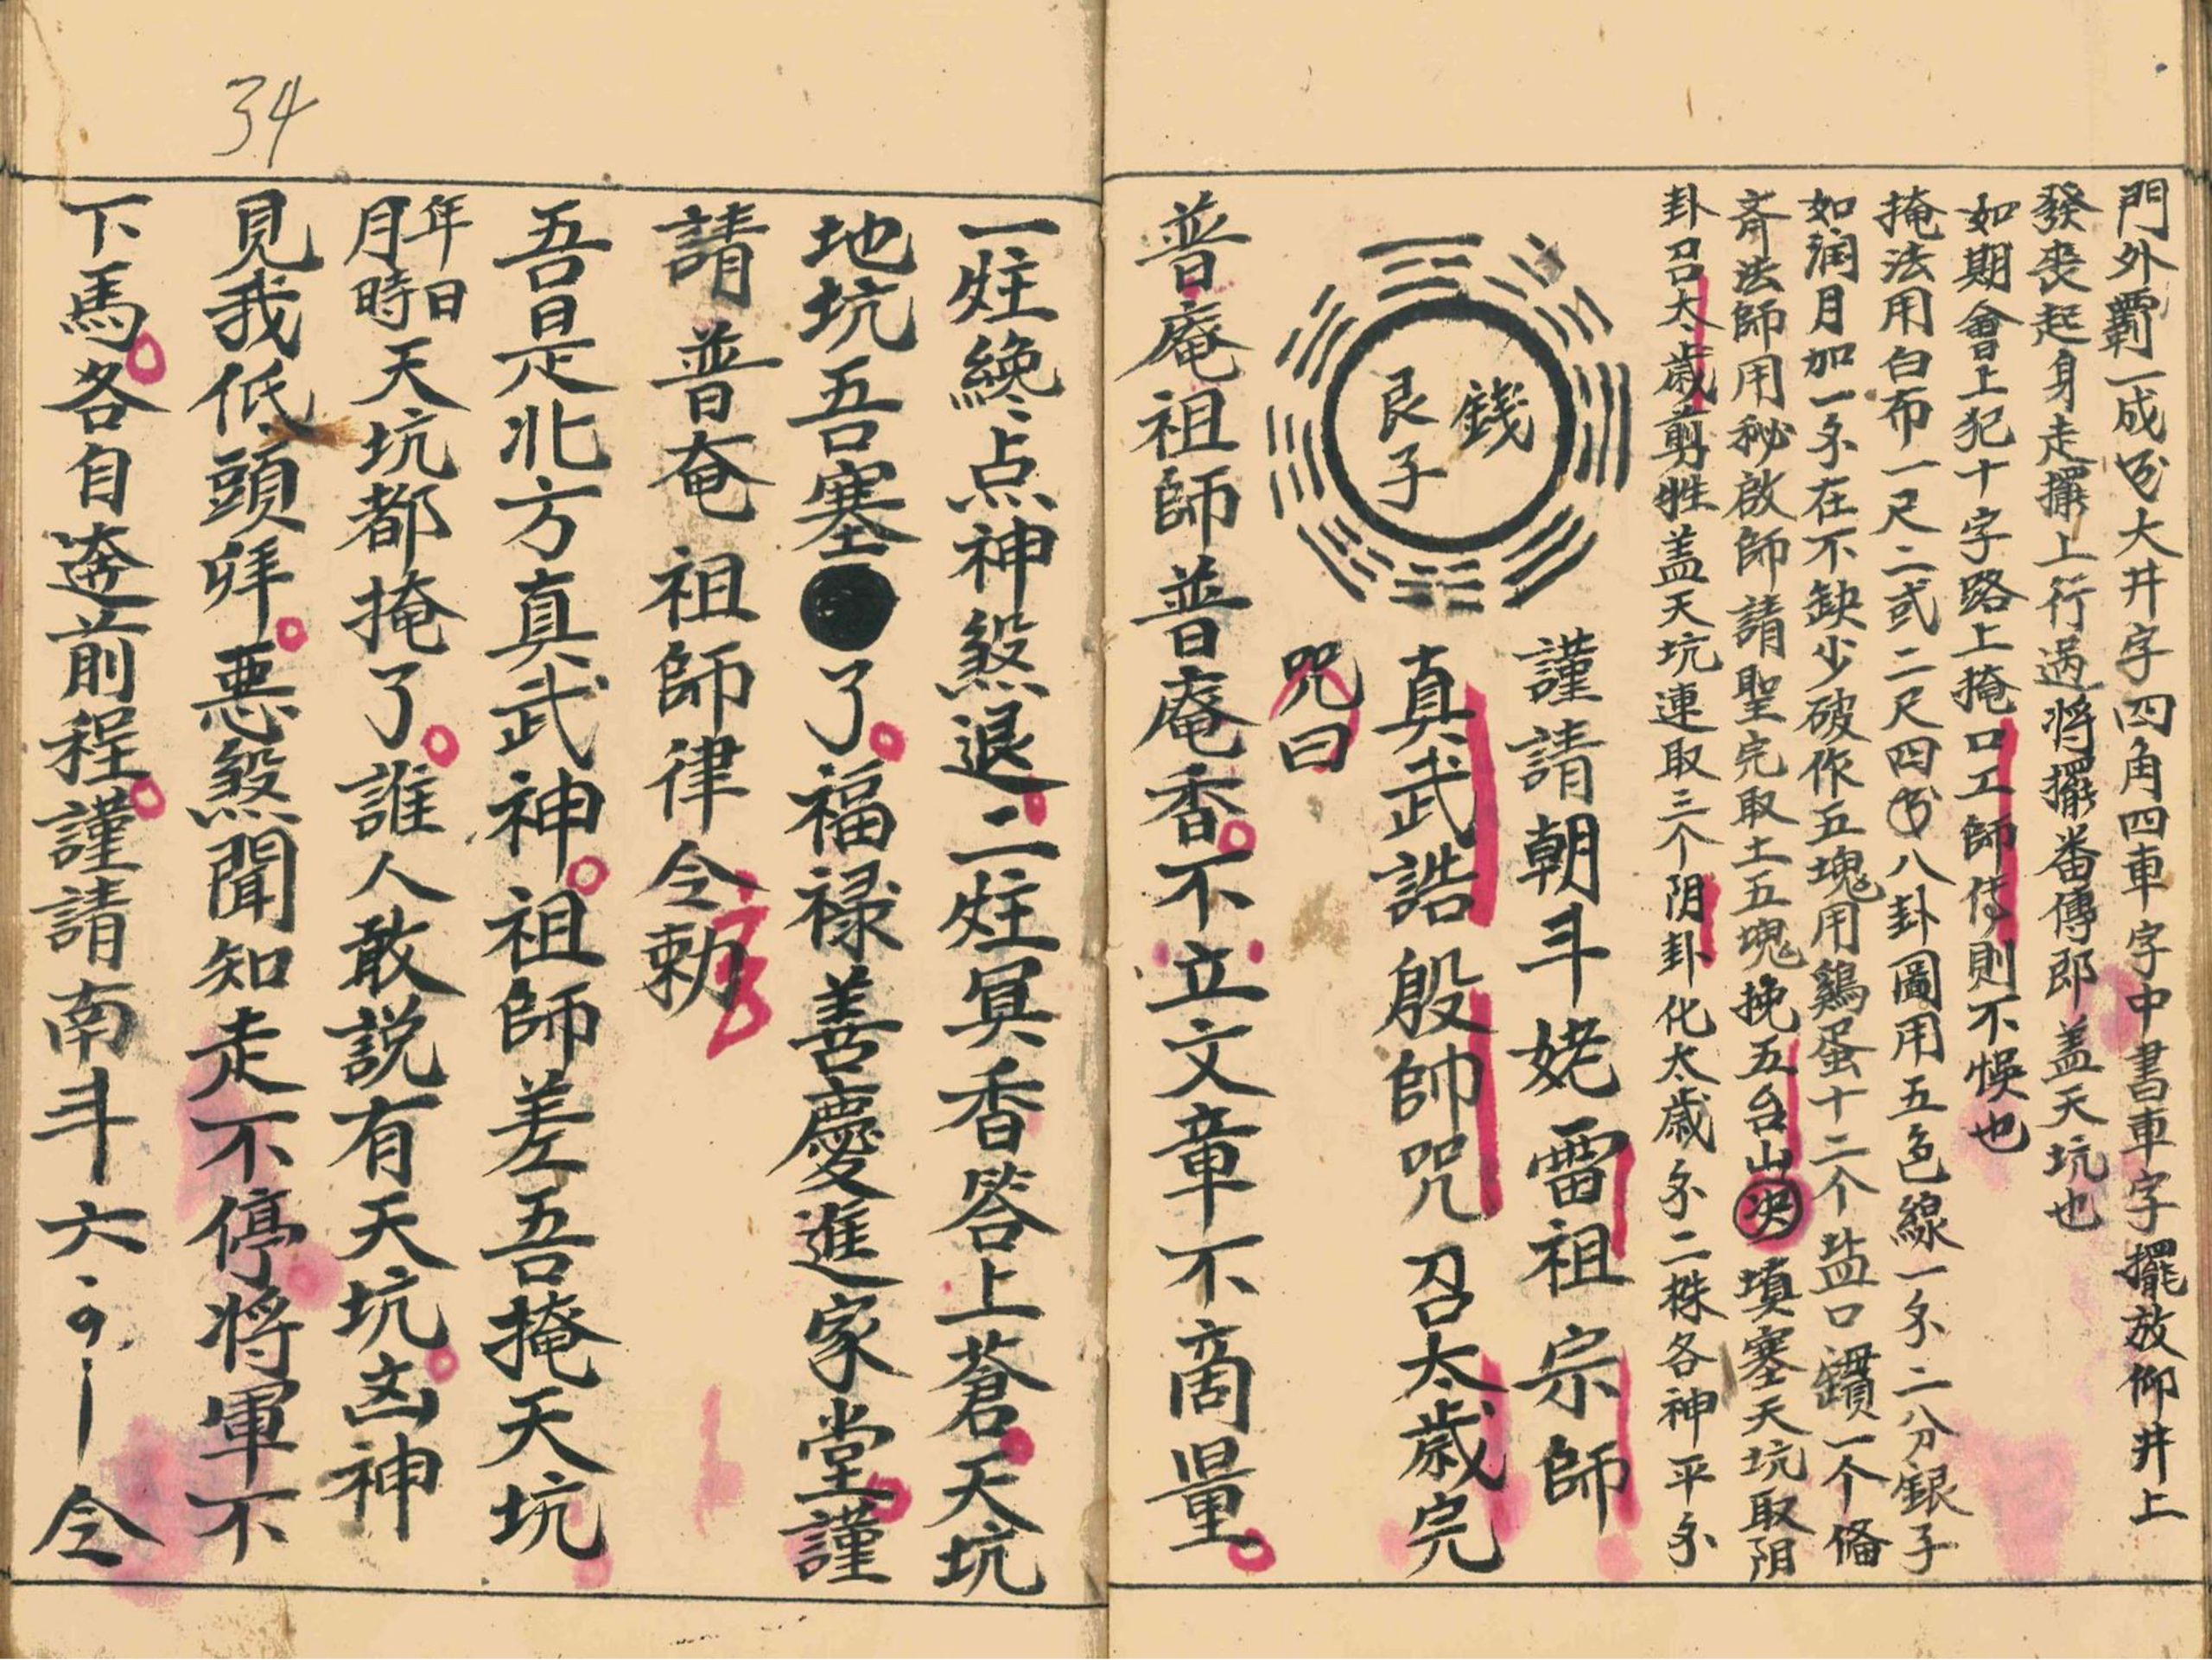 門外覇一成 大井字四角四車字中書車字擺放仰井上
發喪起身走擺上行過將擺番傳郎盖天坑也
如期會上犯十字路上掩口工師傅則不悞也
掩法用白布一尺二或二尺四 八卦圖用五色線一 二分銀子
如润月加一 在不缺少破作五塊用鷄蛋十二个盐口 一个俻
斉法師用秘啟師請聖完取土五塊挽五台山决填塞天坑取阴
卦召太歲剪牲盖天坑連取三个阴卦化太歲 二株各神平
錢
艮子
謹請朝斗姥雷祖宗師
真武誥殷帥咒召太歲完
咒曰
普庵祖師普庵香不立文章不啇量
一炷纔点神煞退二炷冥香答上蒼天坑
地坑吾塞●了福禄善慶進家堂謹
請普奄祖師律令勅
吾是北方真武神祖師差吾掩天坑
年月日時天坑都掩了誰人敢説有天坑凶神
見我低頭拜惡煞聞知走不停將軍不
下馬各自逩前程謹請南斗六 令
34